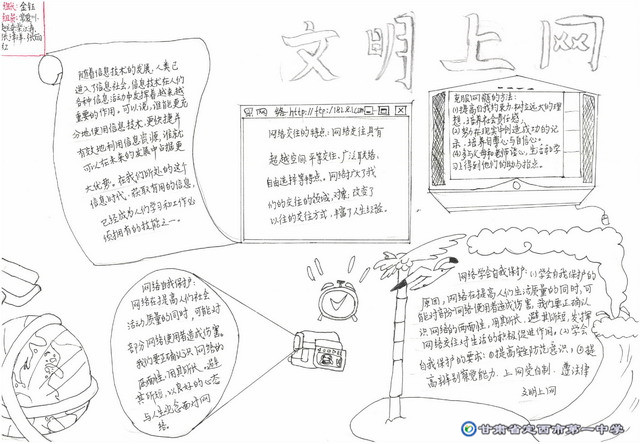 组长：金钰
文明上网
随着信息技术的发展，人类已
进入了信息社会，信息技术在人们
各种信息活动中发挥着越来越
重要的作用。可以说，谁能更充
分地使用信息技术，更快捷
有效地利用信息资源，谁就
可以在未来的发展中占据更
大优势。在我们所处的这个
信息时代，获取有用的信息，
已经成为人们学习和工作必
须拥有的技能之一。
网络 http://ftp:/
网络交往的特点：网络交往具有
超越空间、平等交往、广泛联络、
自由选择等特点。网络扩大了我
们的交往的领域，对象，改变了
以往的交往方式，丰富了人生经验。
克服网瘾的方法：
(1)提高自我约束力，树立远大的理
想，培养社会责任感；
(2)努力在现实中创造成功的记
录，培养自尊心与自信心。
(3)多与父母和老师谈心，生活和学
习上得到他们的帮助与指点。
网络自我保护：
网络在提高人们社会
活动质量的同时，可能对
部分网络使用者造成伤害。
我们要正确认识网络的
两面性，用其所长、避
其所短，以良好的心态
与人生观念面对网
络。
网络学会自我保护：(1)学会自我保护的
原因，网络在提高人们生活质量的同时，可
能对部分网络使用者造成伤害，我们要正确认
识网络的两面性，用其所长、避其所短，发挥
网络交往对生活的积极促进作用。(2)学会
自我保护的要求：①提高安全防范意识；②提
高辨别觉察能力。上网受自制、遵法律
文明上网
甘肃省定西市第一中学